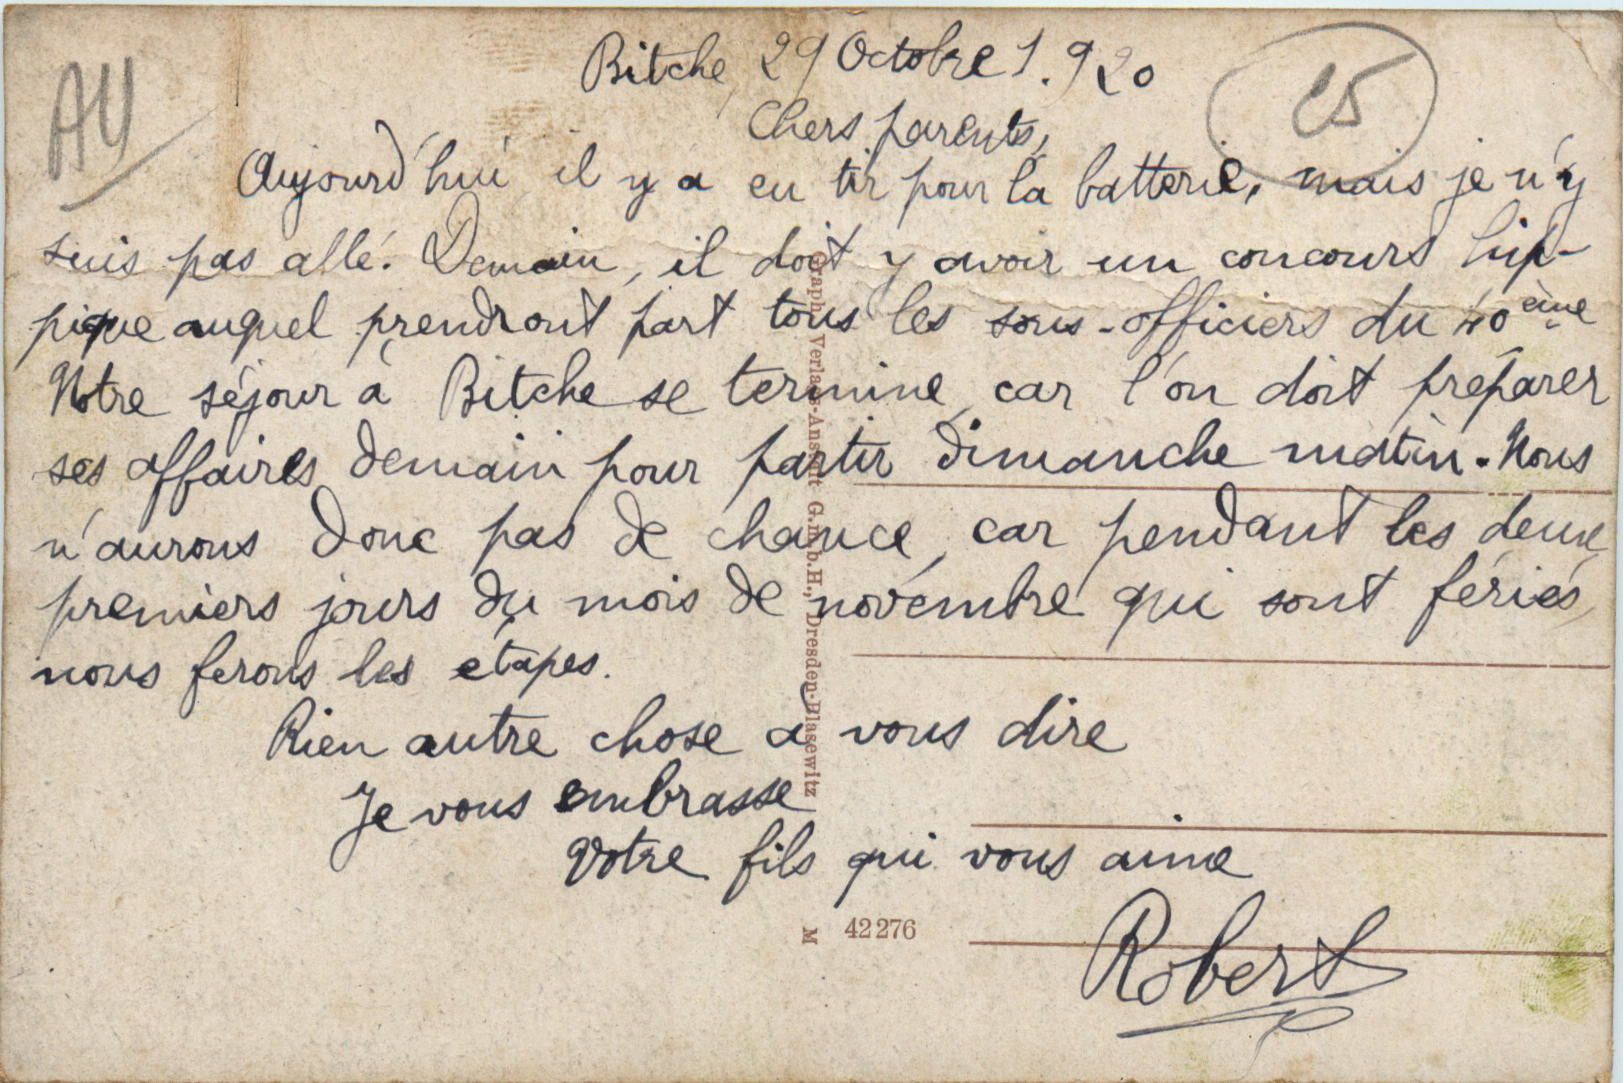 Bitche, 29 Octobre 1.920
AU
25
Chers parents,
Aujourd'hui il y a eu tir pour la batterie, mais je n'y
suis pas allé. Demain, il doit y avoir un concours hip-
pique auquel prendront part tous les sous-officiers du 40ème
Notre séjour à Bitche se termine, car l'on doit préparer
ses affaires demain pour partir dimanche matin. Nous
n'aurons donc pas de chance, car pendant les deux
premiers jours du mois de novembre qui sont fériés,
nous ferons les étapes.
Rien autre chose à vous dire
Je vous embrasse
Votre fils qui vous aime
Robert
Graph. Verlags-Anstalt G.m.b.H., Dresden-Blasewitz
M 42276